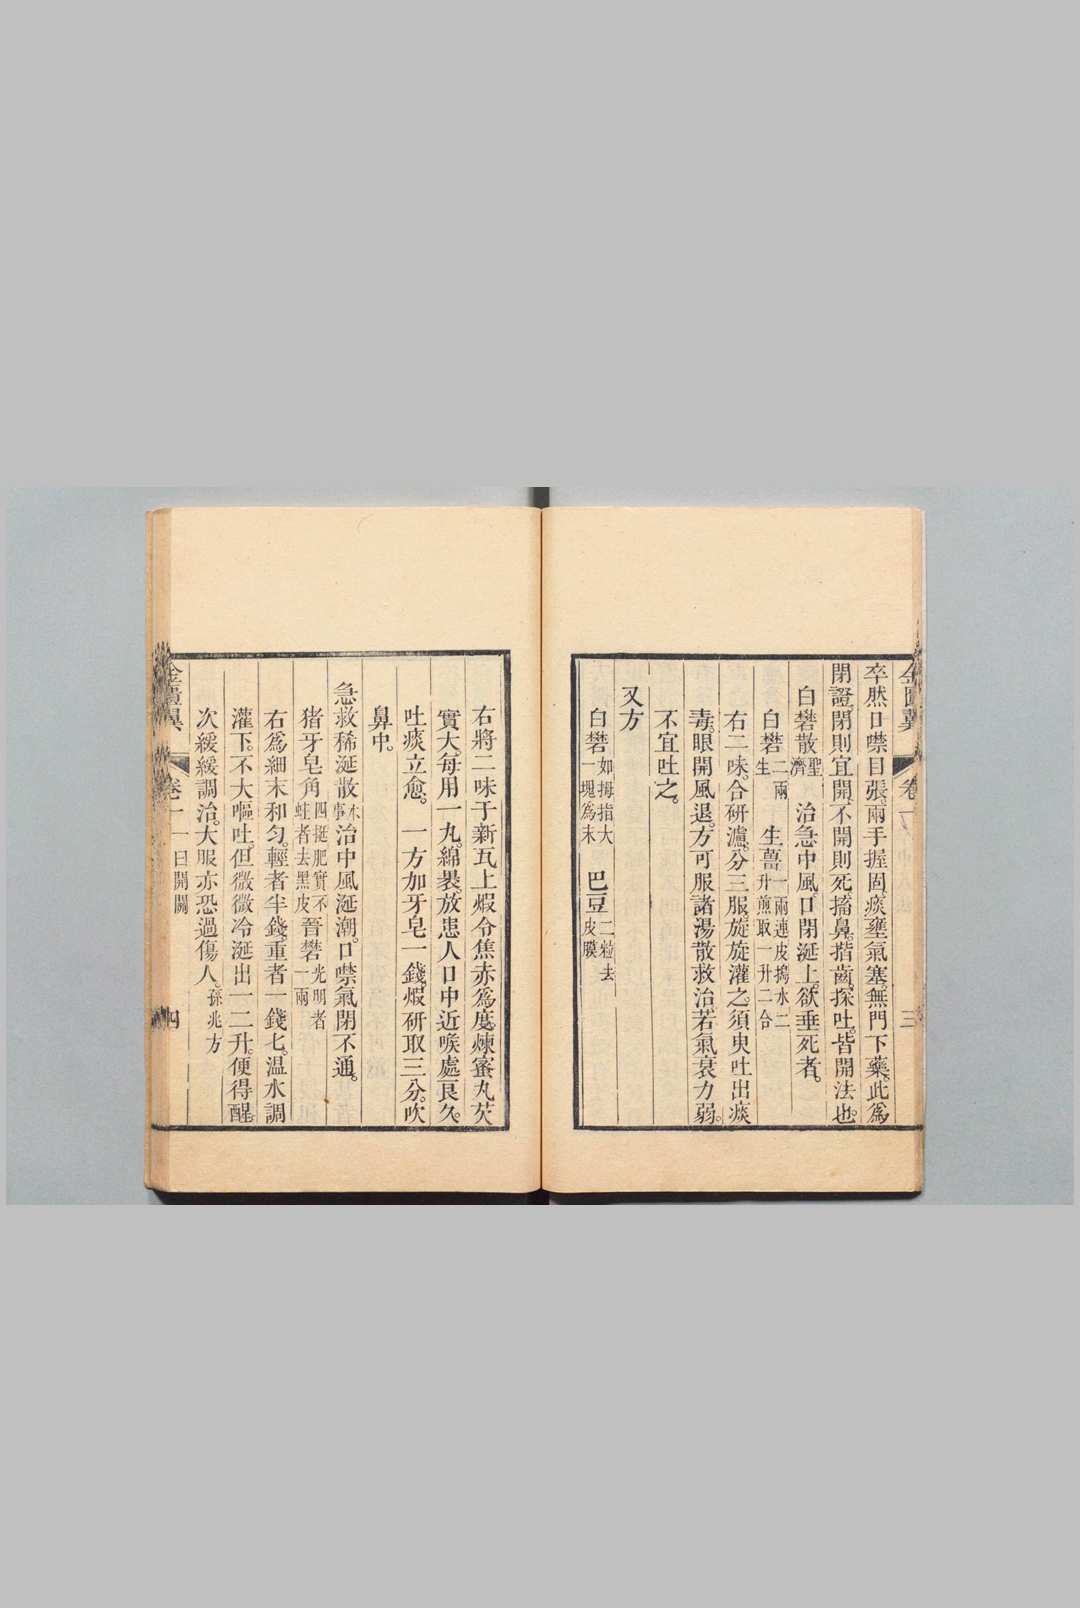 金匱翼 卷一 三
卒然口噤目張。兩手握固。痰壅氣塞。無門下藥。此為
閉證。閉則宜開。不開則死。搐鼻揩齒。探吐。皆開法也。
白礬散聖濟 治急中風。口閉涎上。欲垂死者。
白礬二兩生 生薑一兩連皮搗水二升煎取一升二合
右二味。合研濾。分三服。旋旋灌之。須臾吐出痰
毒。眼開風退。方可服諸湯散救治。若氣衰力弱。
不宜吐之。
又方
白礬如拇指大一塊為末 巴豆二粒去皮膜
右將二味于新瓦上煆令焦赤為度。煉蜜丸芡
實大。每用一丸。綿裹放患人口中近喉處。良久。
吐痰立愈。 一方加牙皂一錢。煆研取三分。吹
鼻中。
急救稀涎散本事 治中風涎潮。口噤氣閉不通。
猪牙皂角四挺肥實不蛀者去黑皮 晉礬光明者一兩
右為細末和勻。輕者半錢。重者一錢匕。温水調
灌下。不大嘔吐。但微微冷涎出一二升。便得醒。
次緩緩調治。大服亦恐過傷人。孫兆方
金匱翼 卷一 一曰開關 四